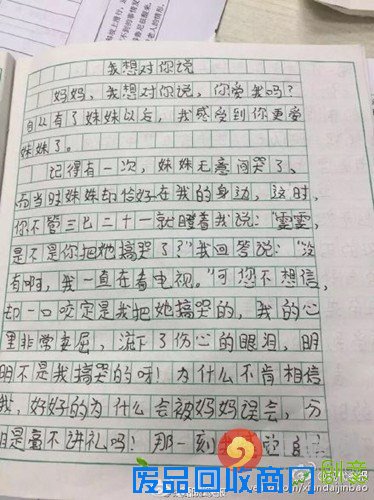 我想对你说
妈妈，我想对你说，你爱我吗？
自从有了妹妹以后，我感受到你更爱
妹妹了。
记得有一次，妹妹无意间哭了，
而当时妹妹却恰好在我的身边，这时，
你不管三七二十一就瞪着我说：“雲雲，
是不是你把她搞哭了？”我回答说：“没
有啊，我一直在看电视。”可您不想信，
却一口咬定是我把她搞哭的，我的心
里非常委屈，流下了伤心的眼泪，明
明不是我搞哭的呀！为什么不肯相信
我，好好的为什么会被妈妈误会，分
明是毫不讲礼吗！那一刻
废品回收商网
创意